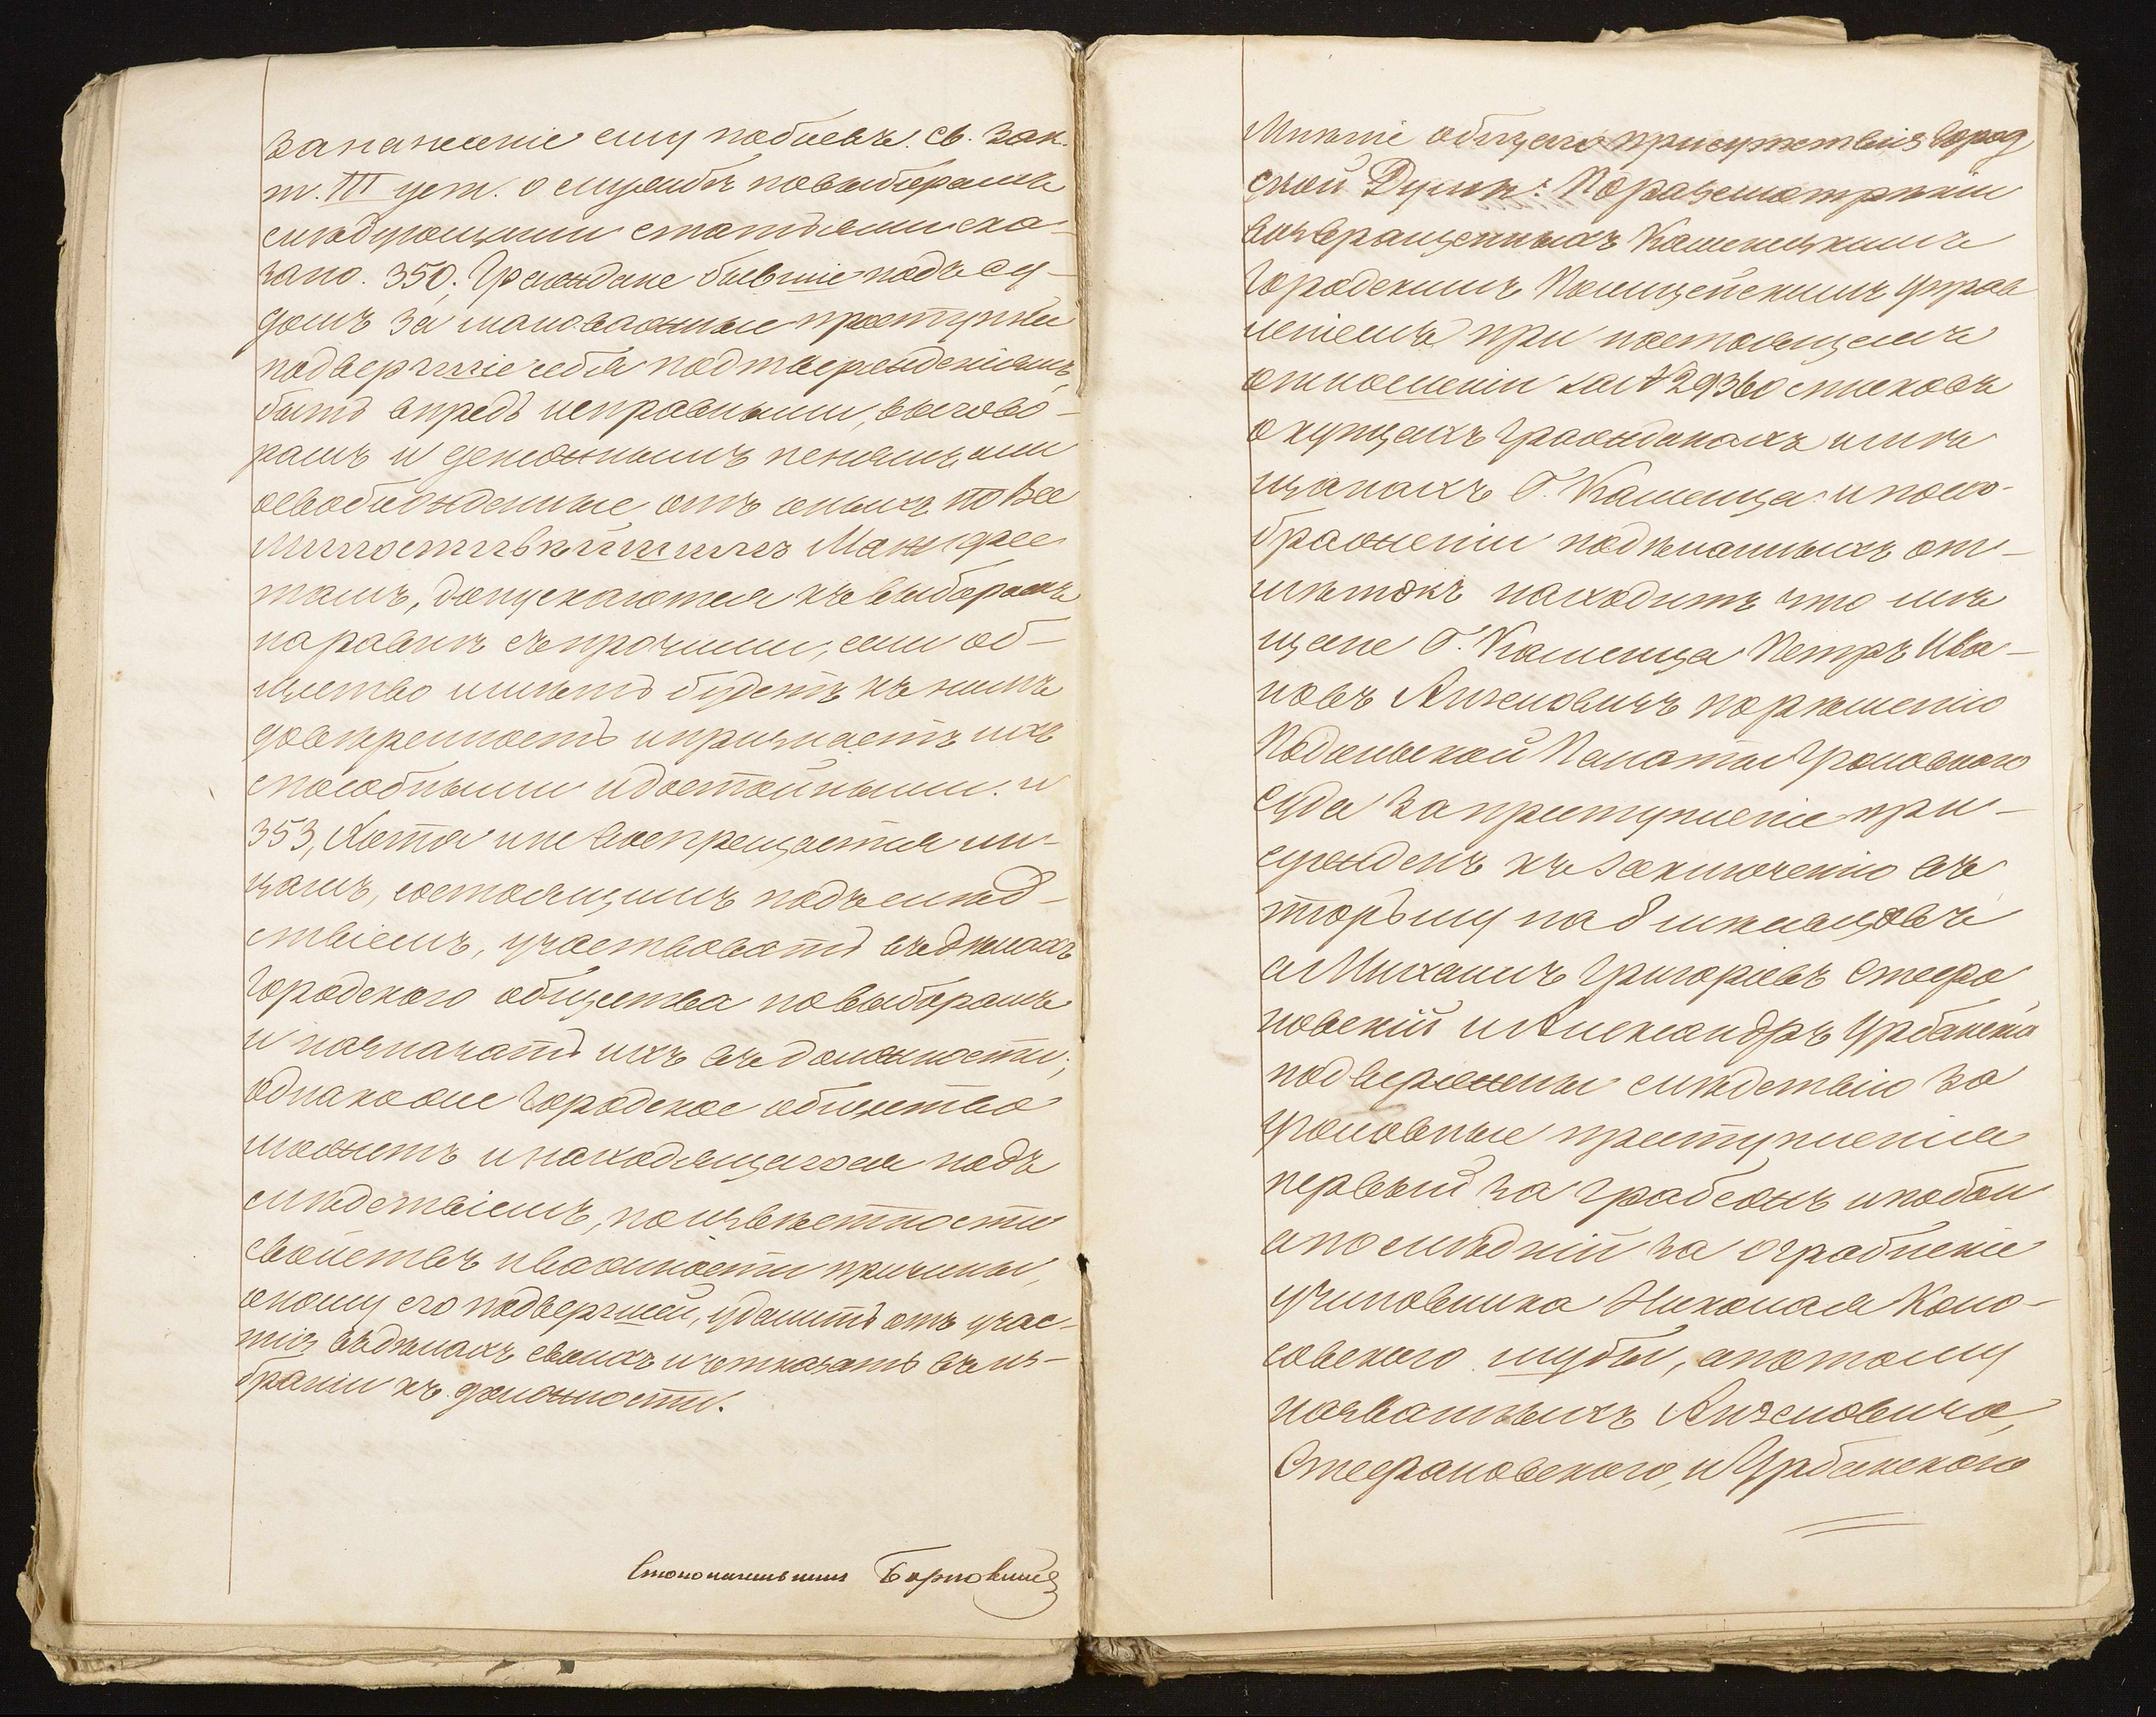 за нанесеніе ему побоевъ. Св. Зак.
т. III уст. о службѣ по выборамъ
слѣдующими статьями ска-
зано. 350. Граждане бывшіе подъ су-
домъ за маловажные проступки
подвергшіе себя подтвержденіямъ,
быть впредь исправными, выгово-
рамъ и денежнымъ пенямъ, или
освобожденные отъ оныхъ по Все
милостивѣйшимъ Манифес
тамъ, допускаются къ выборамъ
наравнѣ съ прочими, если об-
щество имѣть будетъ къ нимъ
довѣренность и признаетъ ихъ
способными и достойными. и
353, Хотя и не воспрещается ли-
цамъ, состоящимъ подъ слѣд-
ствіемъ, участвовать въ дѣлахъ
Городского общества по выборамъ
и назначать ихъ въ должности;
однакоже Городское общество
можетъ и находящагося подъ
слѣдствіемъ, по извѣстности
свойствъ и важности причины,
оному его подвергшей, удалить отъ учас-
тія въ дѣлахъ своихъ и отказать въ из-
браніи къ должности.
Столоначальникъ
Мнѣніе общаго присутствія Город
ской Думы: По разсмотрѣніи
возвращенныхъ Каменецкимъ
Городскимъ Полицейскимъ Управ
леніемъ при настоящемъ
отношеніи за № 2936 списковъ
о купцахъ гражданахъ и мѣ
щанахъ Г. Каменца и по со-
ображеніи подѣланныхъ от-
мѣтокъ находитъ что мѣ
щане Г. Каменца Петръ Ива-
новъ Анжеловичъ по рѣшенію
Подольской Палаты Уголовного
Суда за преступленіе при-
сужденъ къ заключенію въ
тюрьму на 8 мѣсяцовъ
а Михаилъ Григорьевъ Стефа
новскій и Александръ Урбанскій
подвержены слѣдствію за
уголовные преступленія
первый за грабежъ и побои
а послѣдній за ограбленіе
у чиновника Николая Коло-
совского шубы, а потому
названныхъ Анжеловича,
Стефановского, и Урбанского